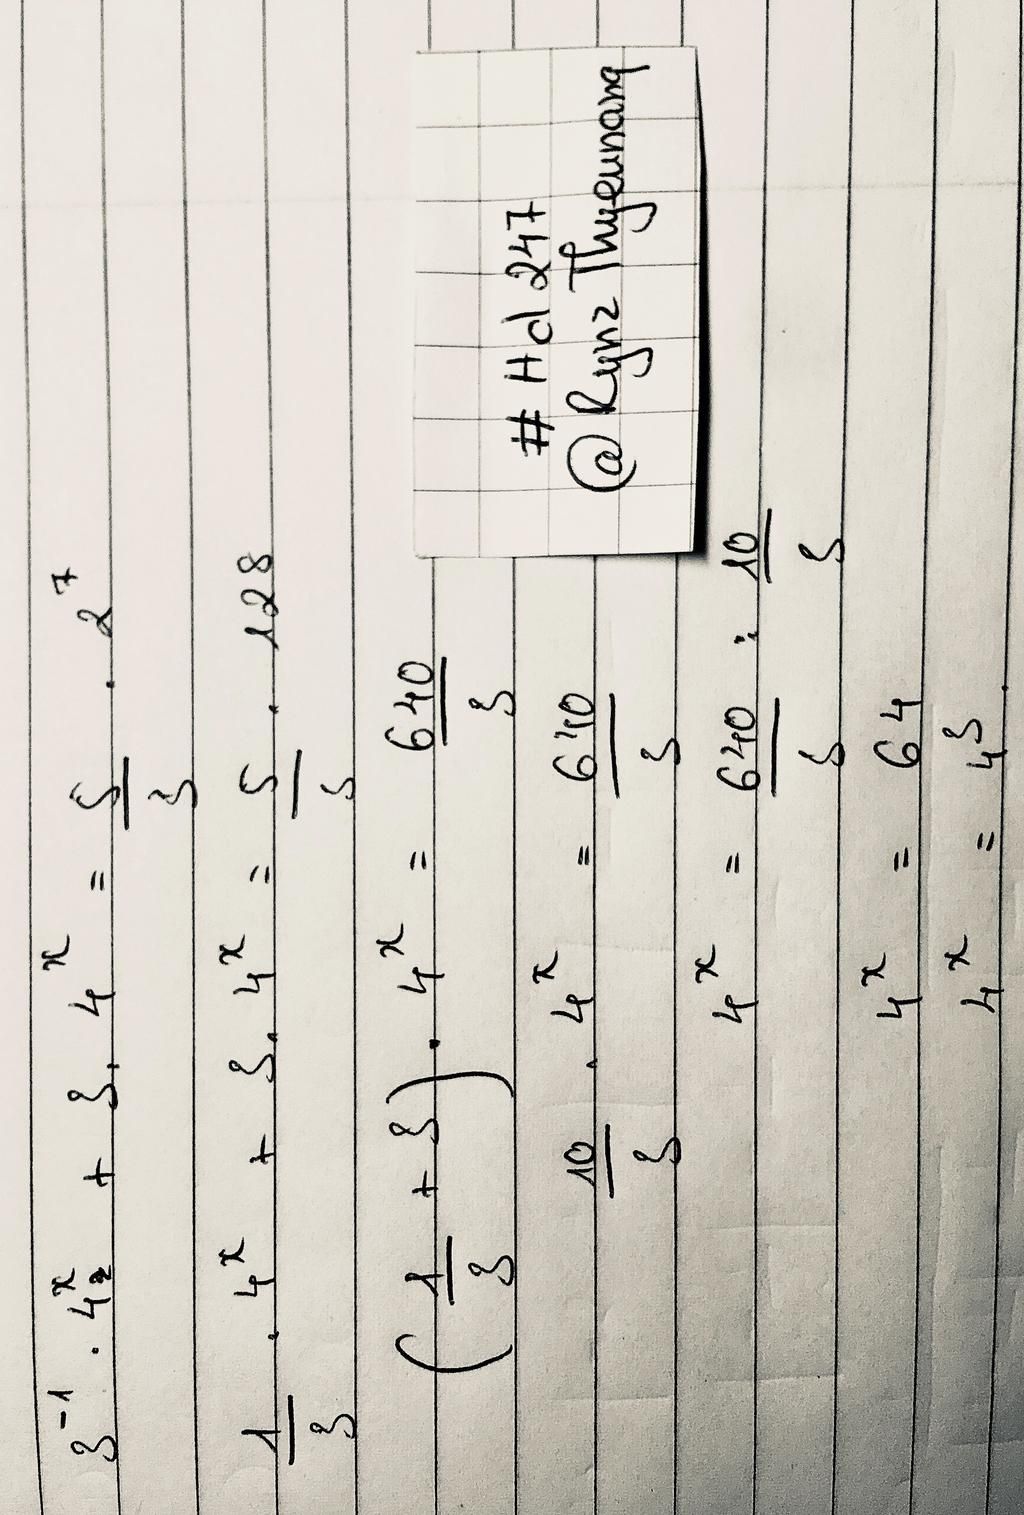 3⁻¹ . 4ˣ + 3. 4ˣ = 5/3 . 2⁷
1/3 . 4ˣ + 3. 4ˣ = 5/3 . 128
(1/3 + 3) . 4ˣ = 640/3
10/3 . 4ˣ = 640/3
4ˣ = 640/3 : 10/3
4ˣ = 64
4ˣ = 4³.
# Hd 247
@ Rynz Thyeunang